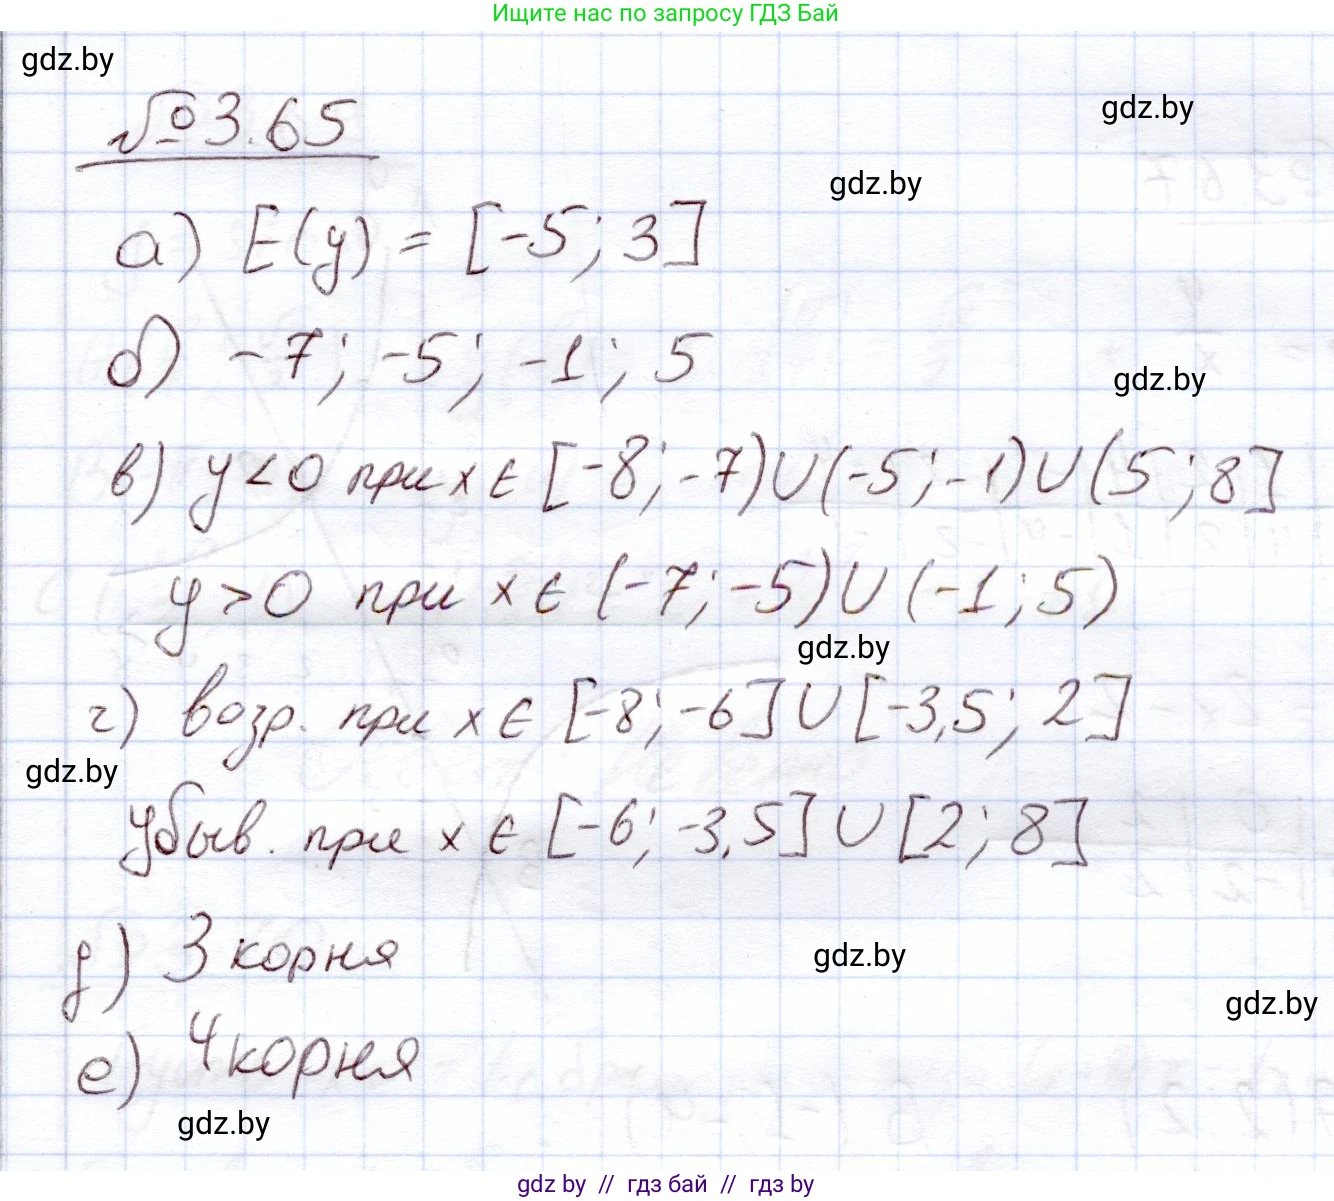 Ищите нас по запросу ГДЗ Бай
gdz.by
№ 3.65
gdz.by
gdz.by
а) E(y) = [-5; 3]
б) -7; -5; -1; 5
gdz.by
в) y < 0 при x ∈ [-8; -7) ∪ (-5; -1) ∪ (5; 8]
y > 0 при x ∈ (-7; -5) ∪ (-1; 5)
gdz.by
г) возр. при x ∈ [-8; -6] ∪ [-3,5; 2]
gdz.by
убыв. при x ∈ [-6; -3,5] ∪ [2; 8]
д) 3 корня
gdz.by
gdz.by
е) 4 корня
gdz.by
gdz by // гдз бай // gdz by